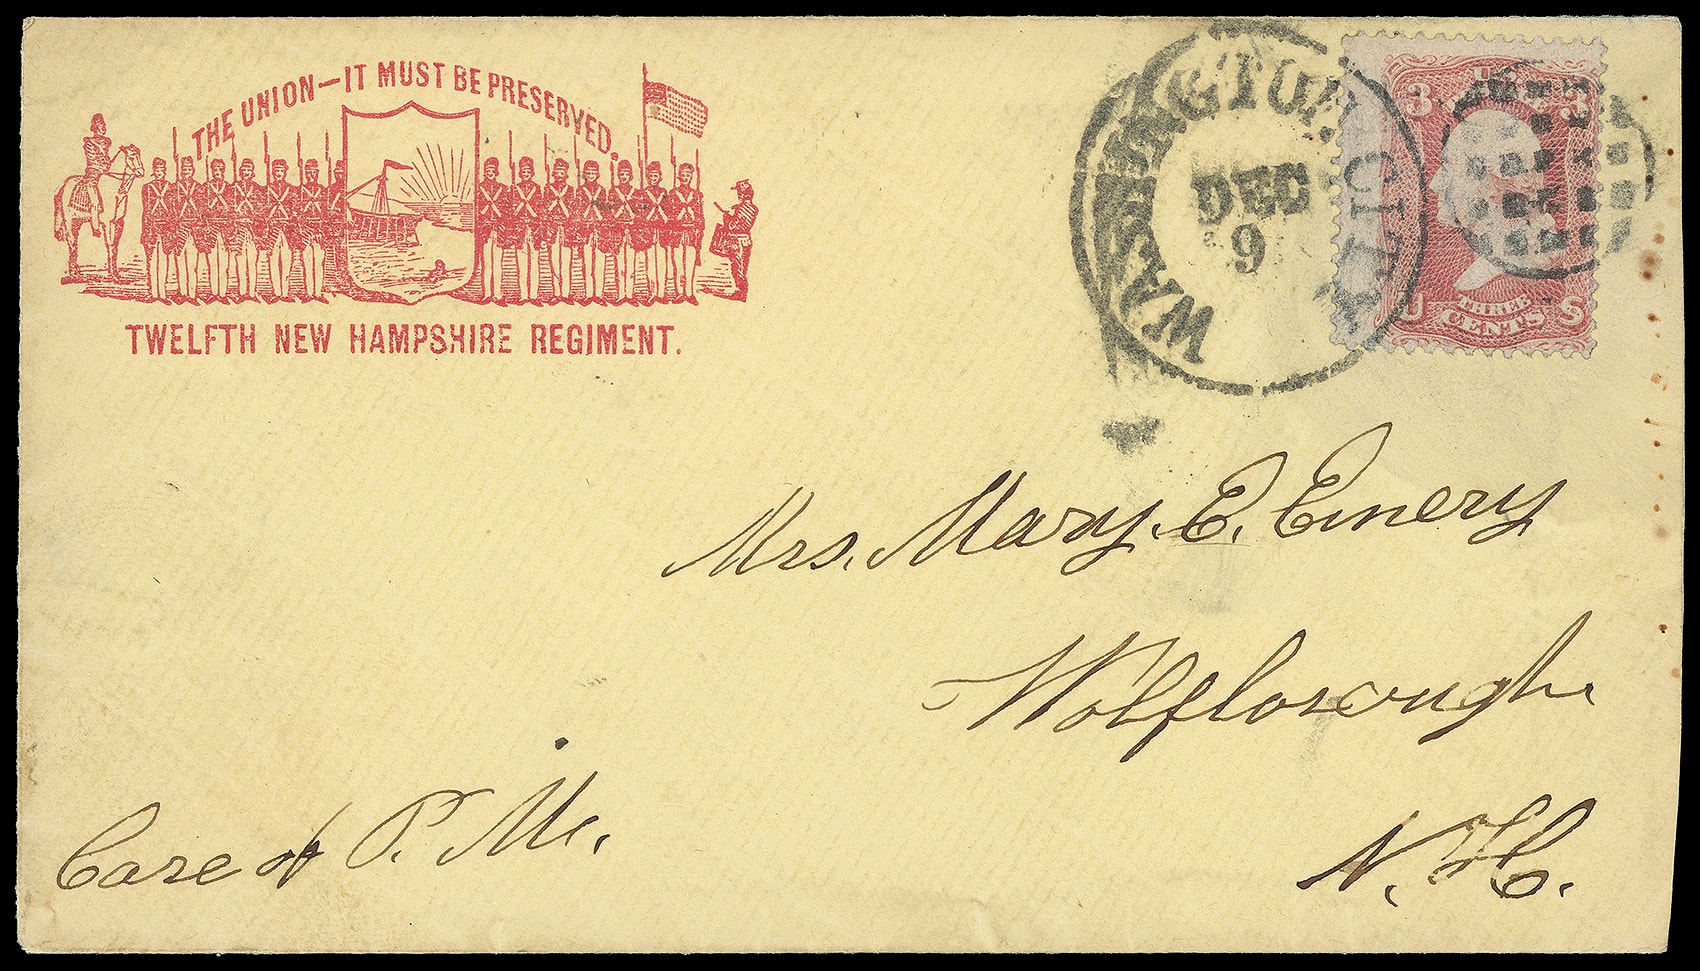 THE UNION—IT MUST BE PRESERVED.
TWELFTH NEW HAMPSHIRE REGIMENT.
WASHINGTON CITY
DEC
9
3 U.S. 3
U THREE S
CENTS
Mrs. Mary. E. Emery
Wolfborough.
N. H.
Care of P. M.